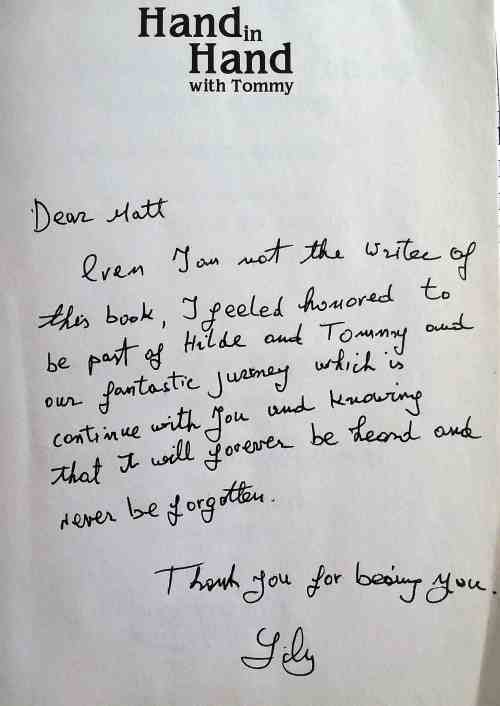 Hand in
Hand
with Tommy
Dear Matt
Even I am not the writer of
this book, I feeled honored to
be part of Hilde and Tommy and
our fantastic jurney which is
continue with you and knowing
that it will forever be heard and
never be forgotten.
Thank you for being you.
Lily